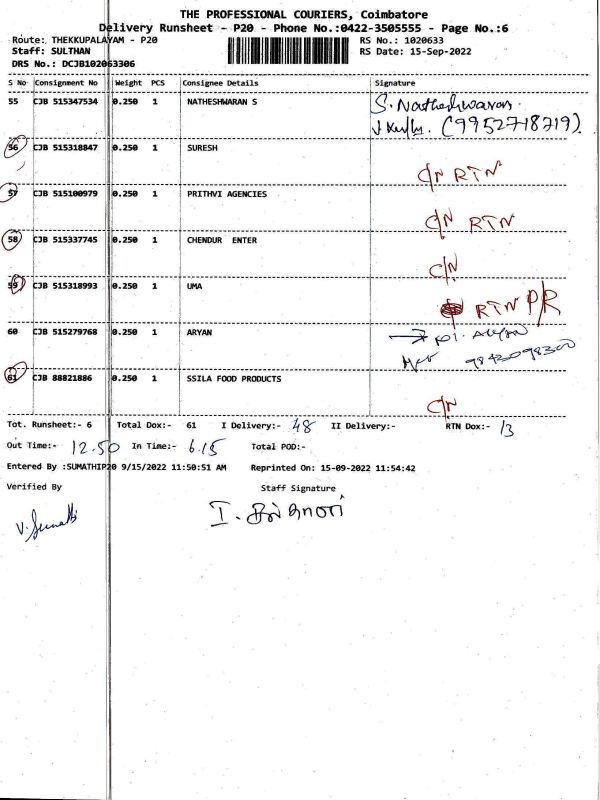 THE PROFESSIONAL COURIERS, Coimbatore
Delivery Runsheet - P20 - Phone No.:0422-3505555 - Page No.:6
Route: THEKKUPALAYAM - P20 RS No.: 1020633
Staff: SULTHAN RS Date: 15-Sep-2022
DRS No.: DCJB102063306
S No Consignment No Weight PCS Consignee Details Signature
55 CJB 515347534 0.250 1 NATHESHWARAN S S. Natheshwaran
(9952718719).
56 CJB 515318847 0.250 1 SURESH
C/N RTN
57 CJB 515100979 0.250 1 PRITHVI AGENCIES
C/N RTN
58 CJB 515337745 0.250 1 CHENDUR ENTER
C/N
59 CJB 515318993 0.250 1 UMA
RTN P/R
60 CJB 515279768 0.250 1 ARYAN
9843098300
61 CJB 88821886 0.250 1 SSILA FOOD PRODUCTS
C/N
Tot. Runsheet:- 6 Total Dox:- 61 I Delivery:- 48 II Delivery:- RTN Dox:- 13
Out Time:- 12.50 In Time:- 6.15 Total POD:-
Entered By :SUMATHIP20 9/15/2022 11:50:51 AM Reprinted On: 15-09-2022 11:54:42
Verified By Staff Signature
V. Sumathi